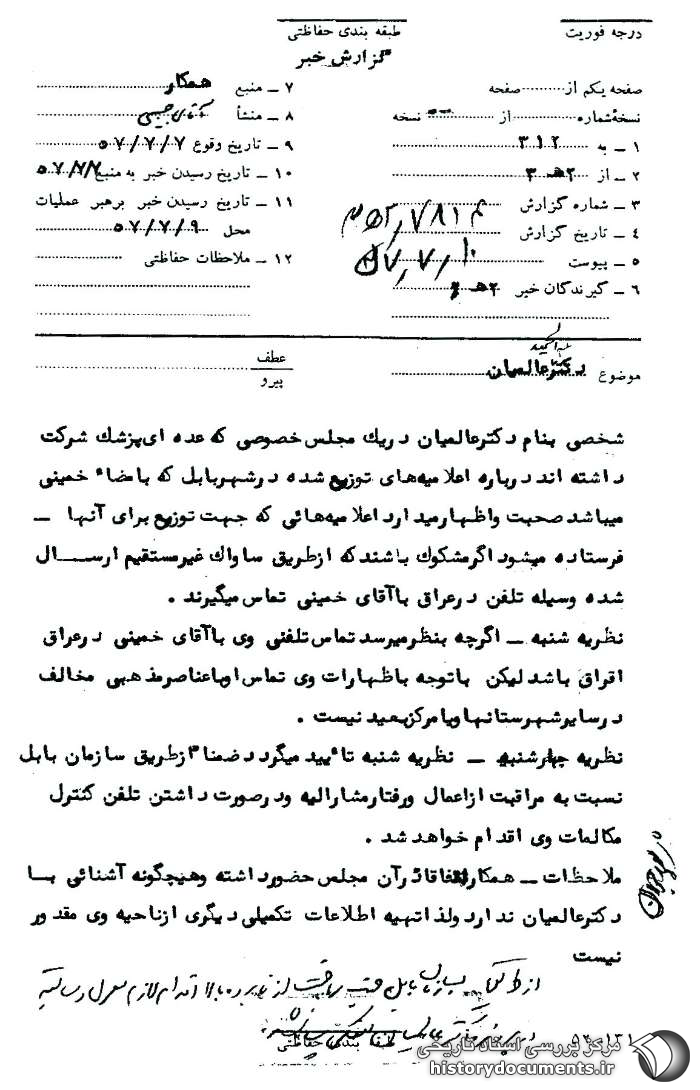 درجه فوریت
طبقه بندی حفاظتی
گزارش خبر
صفحه یکم از ............ صفحه
نسخه شماره ............ از ............ نسخه
۱ ــ به ۳۱۲
۲ ــ از ۲هـ ۳
۳ ــ شماره گزارش
۴ ــ تاریخ گزارش
۵ ــ پیوست
۶ ــ گیرندگان خبر
۷ ــ منبع همکار
۸ ــ منشأ
۹ ــ تاریخ وقوع ۵۷/۷/۷
۱۰ ــ تاریخ رسیدن خبر به منبع ۵۷/۷/۷
۱۱ ــ تاریخ رسیدن خبر برهبر عملیات
محل ۵۷/۷/۹
۱۲ ــ ملاحظات حفاظتی
موضوع دکترعالمیان
عطف
پیرو
شخصی بنام دکترعالمیان دریك مجلس خصوصی که عده ای پزشك شرکت
داشته اند درباره اعلامیه‌های توزیع شده درشهربابل که بامضاء خمینی
میباشد صحبت واظهارمیدارد اعلامیه‌هائی که جهت توزیع برای آنها ــ
فرستاده میشود اگرمشکوك باشند که ازطریق ساواك غیرمستقیم ارســـال
شده وسیله تلفن درعراق باآقای خمینی تماس میگیرند .
نظریه شنبه ــ اگرچه بنظرمیرسد تماس تلفنی وی باآقای خمینی درعراق
اقراق باشد لیکن باتوجه باظهارات وی تماس اوباعناصرمذهبی مخالف
درسایرشهرستانها ویامرکزبعید نیست .
نظریه چهارشنبه ــ نظریه شنبه تائید میگردد ضمنا ازطریق سازمان بابل
نسبت به مراقبت ازاعمال ورفتارمشارالیه ودرصورت داشتن تلفن کنترل
مکالمات وی اقدام خواهد شد .
ملاحظات ــ همکار اتفاقا درآن مجلس حضورداشته وهیچگونه آشنائی بــا
دکترعالمیان ندارد ولذا تهیه اطلاعات تکمیلی دیگری ازناحیه وی مقدور
نیست
۵۲-۱۳۱
طبقه بندی حفاظتی
مرکز بررسی اسناد تاریخی
historydocuments.ir